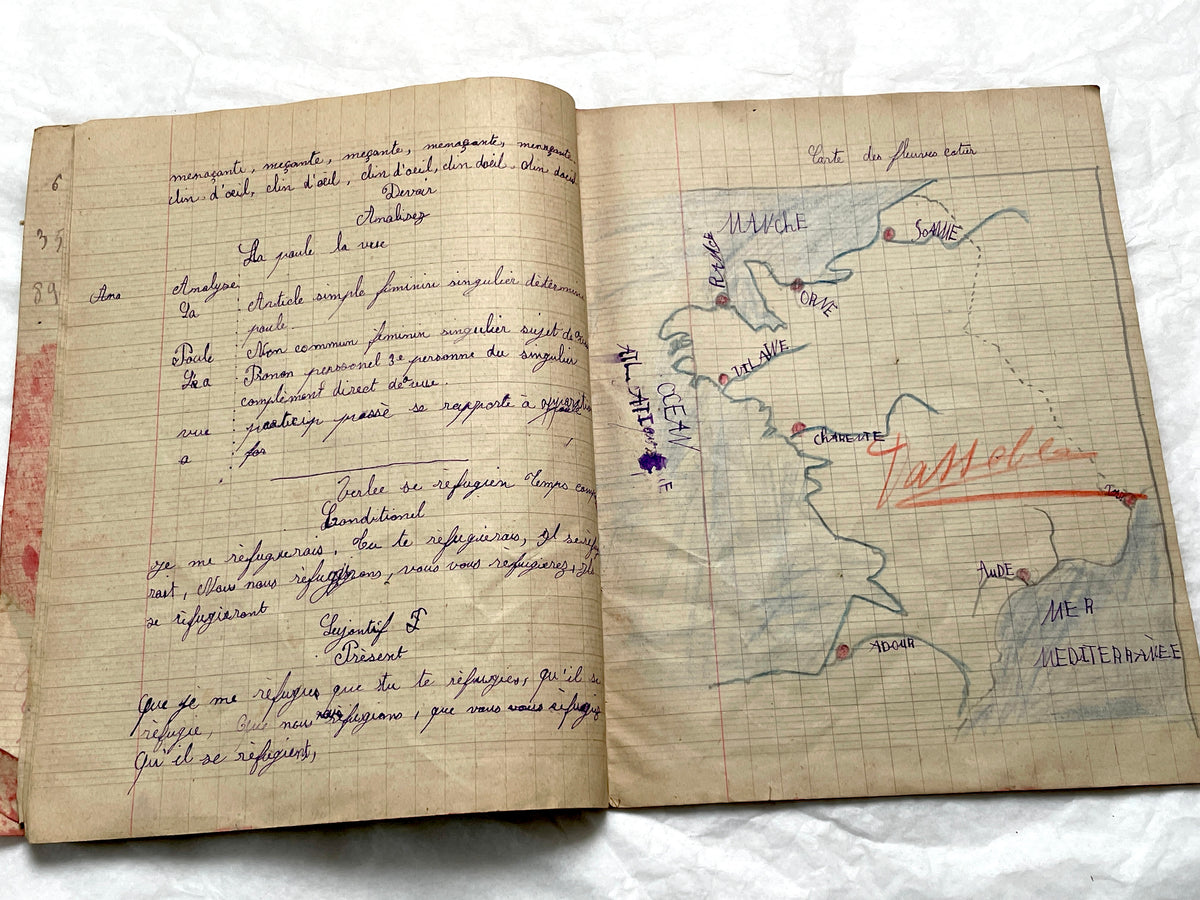 6
35
89
menaçante, meçante, meçante, menaçante, menaçante
clin d'oeil, clin d'oeil, clin d'oeil, clin doeil, clin doeil
Devoir
Analisez
La poule la vue
Ana
Analyse
La Article simple féminin singulier détermine
poule
Poule Non commun féminin singulier sujet de
La Pronon personel 3e personne du singulier
complément direct de vue
vue particip passè se rapporte à
a
Verbe se réfugien Temps comp
Conditionel
Je me réfuguerais, Tu te réfuguerais, Il se réfu
rait, Nous nous vous vous refugierez, Ils
se réfugieront
Présent
Que je me réfugies que tu te réfugies, qu'il se
réfugie, Que nous réfugions, que vous vous réfugiez
Qu'il se réfugient,
Carte des fleuves cotier
MANChE
SOMME
RANCE
ORNE
VILAINE
OCEAN
CHARENTE
Tassobleau
AUDE
ADOUR
MER
MEDITERRANÈE